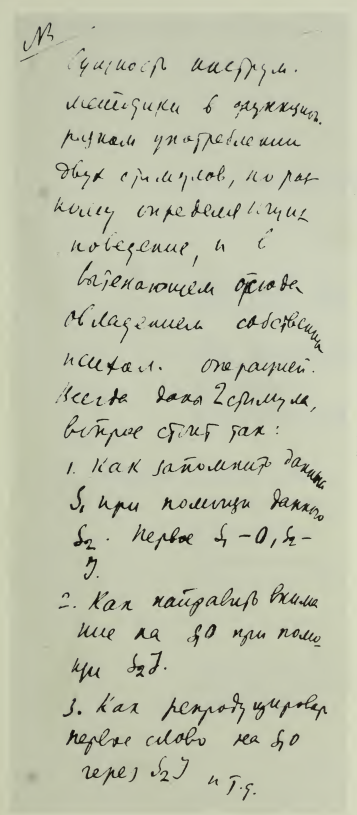 NB
Сущность инструм.
методики в функцион.
разном употреблении
двух стимулов, по раз-
ному определяющих
поведение, и в
вытекающем отсюда
овладением собственными
психол. операцией.
Всегда даны 2 стимула,
вопрос стоит так:
1. Как запомнить данный
S1 при помощи данного
S2. Первое S1 - O, S2 -
J.
2. Как направить внима
ние на S1O при помо-
щи S2J.
3. Как репродуцировар
первое слово на S1O
через S2J и т.д.